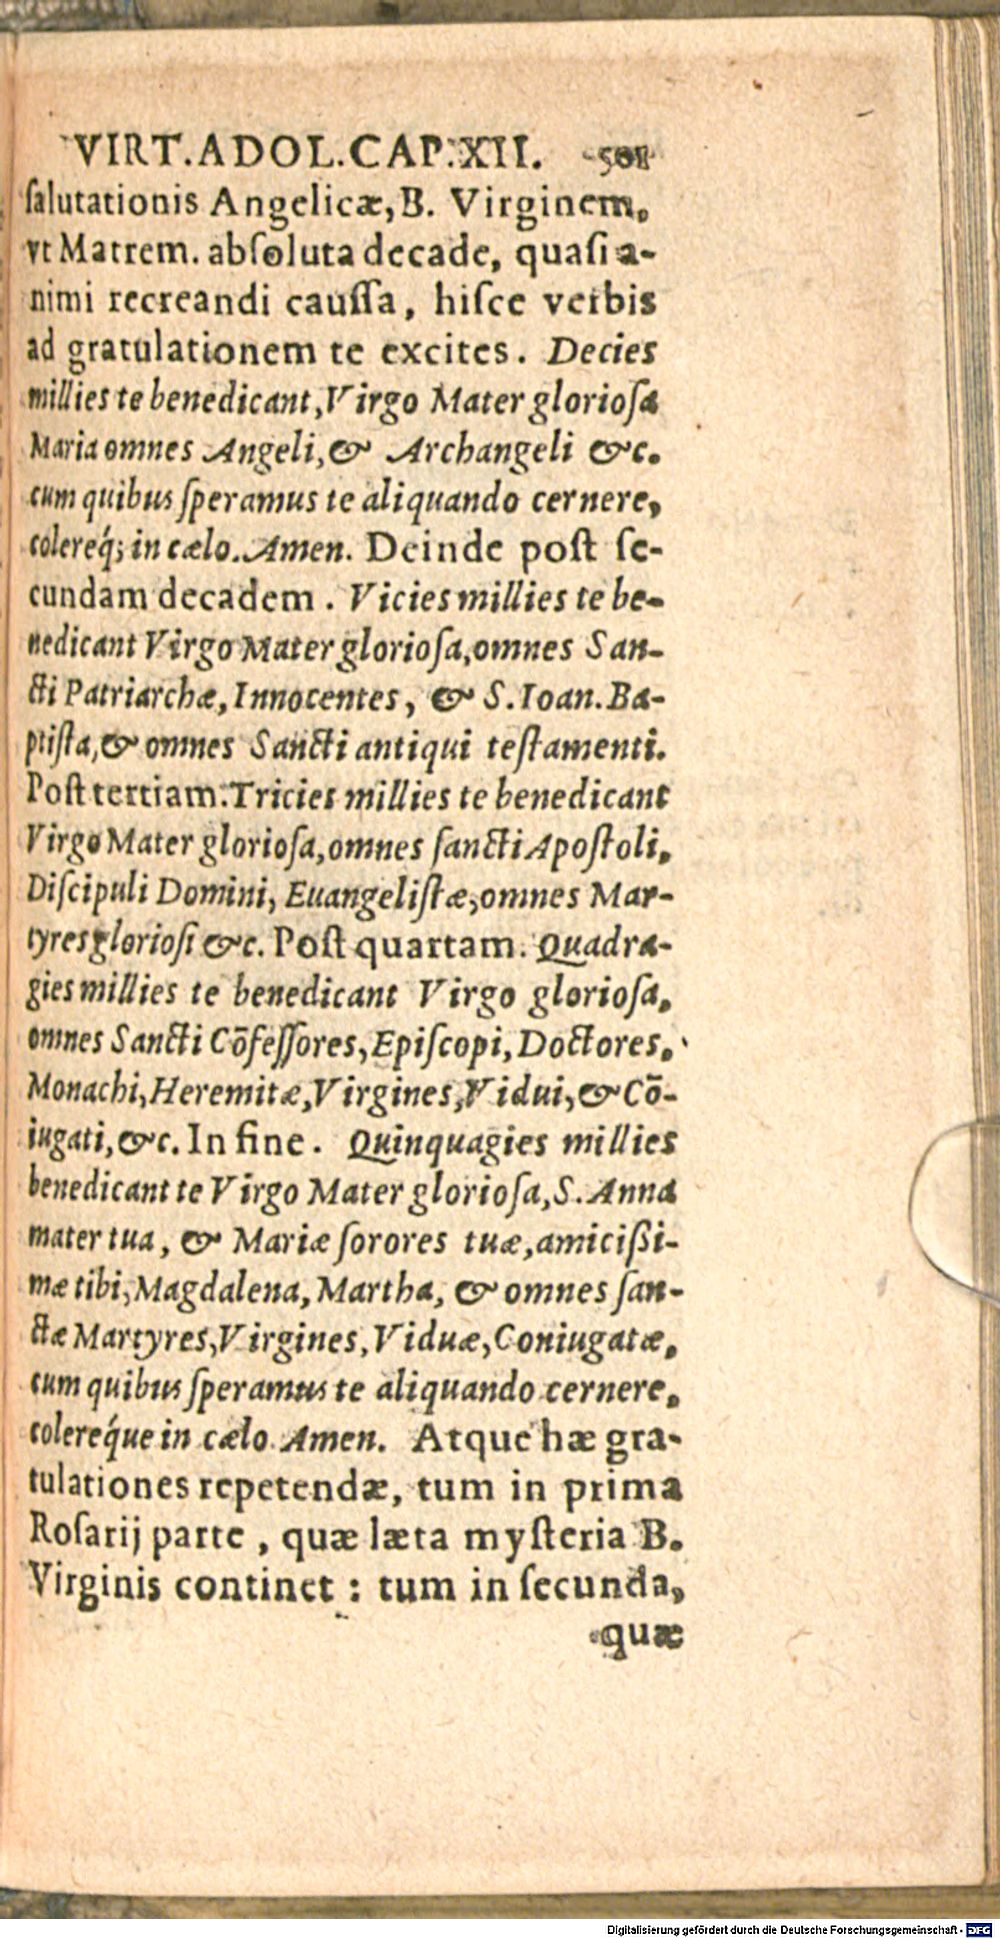 VIRT. ADOL. CAP. XII. 501
ſalutationis Angelicæ, B. Virginem,
vt Matrem. abſoluta decade, quaſi a-
nimi recreandi cauſſa, hiſce verbis
ad gratulationem te excites. Decies
millies te benedicant, Virgo Mater glorioſa
Maria omnes Angeli, & Archangeli &c.
cum quibus ſperamus te aliquando cernere,
colereq́; in cælo. Amen. Deinde poſt ſe-
cundam decadem. Vicies millies te be-
nedicant Virgo Mater glorioſa, omnes San-
cti Patriarchæ, Innocentes, & S. Ioan. Ba-
ptiſta, & omnes Sancti antiqui teſtamenti.
Poſt tertiam. Tricies millies te benedicant
Virgo Mater glorioſa, omnes ſancti Apoſtoli,
Diſcipuli Domini, Euangeliſtæ, omnes Mar-
tyres glorioſi &c. Poſt quartam. Quadra-
gies millies te benedicant Virgo glorioſa,
omnes Sancti Cōfeſſores, Epiſcopi, Doctores,
Monachi, Heremitæ, Virgines, Vidui, & Cō-
iugati, &c. In fine. Quinquagies millies
benedicant te Virgo Mater glorioſa, S. Anna
mater tua, & Mariæ ſorores tuæ, amiciſsi-
mæ tibi, Magdalena, Martha, & omnes ſan-
ctæ Martyres, Virgines, Viduæ, Coniugatæ,
cum quibus ſperamus te aliquando cernere,
coleréque in cælo. Amen. Atque hæ gra-
tulationes repetendæ, tum in prima
Roſarij parte, quæ læta myſteria B.
Virginis continet: tum in ſecunda,
quæ
Digitalisierung gefördert durch die Deutsche Forschungsgemeinschaft - DFG